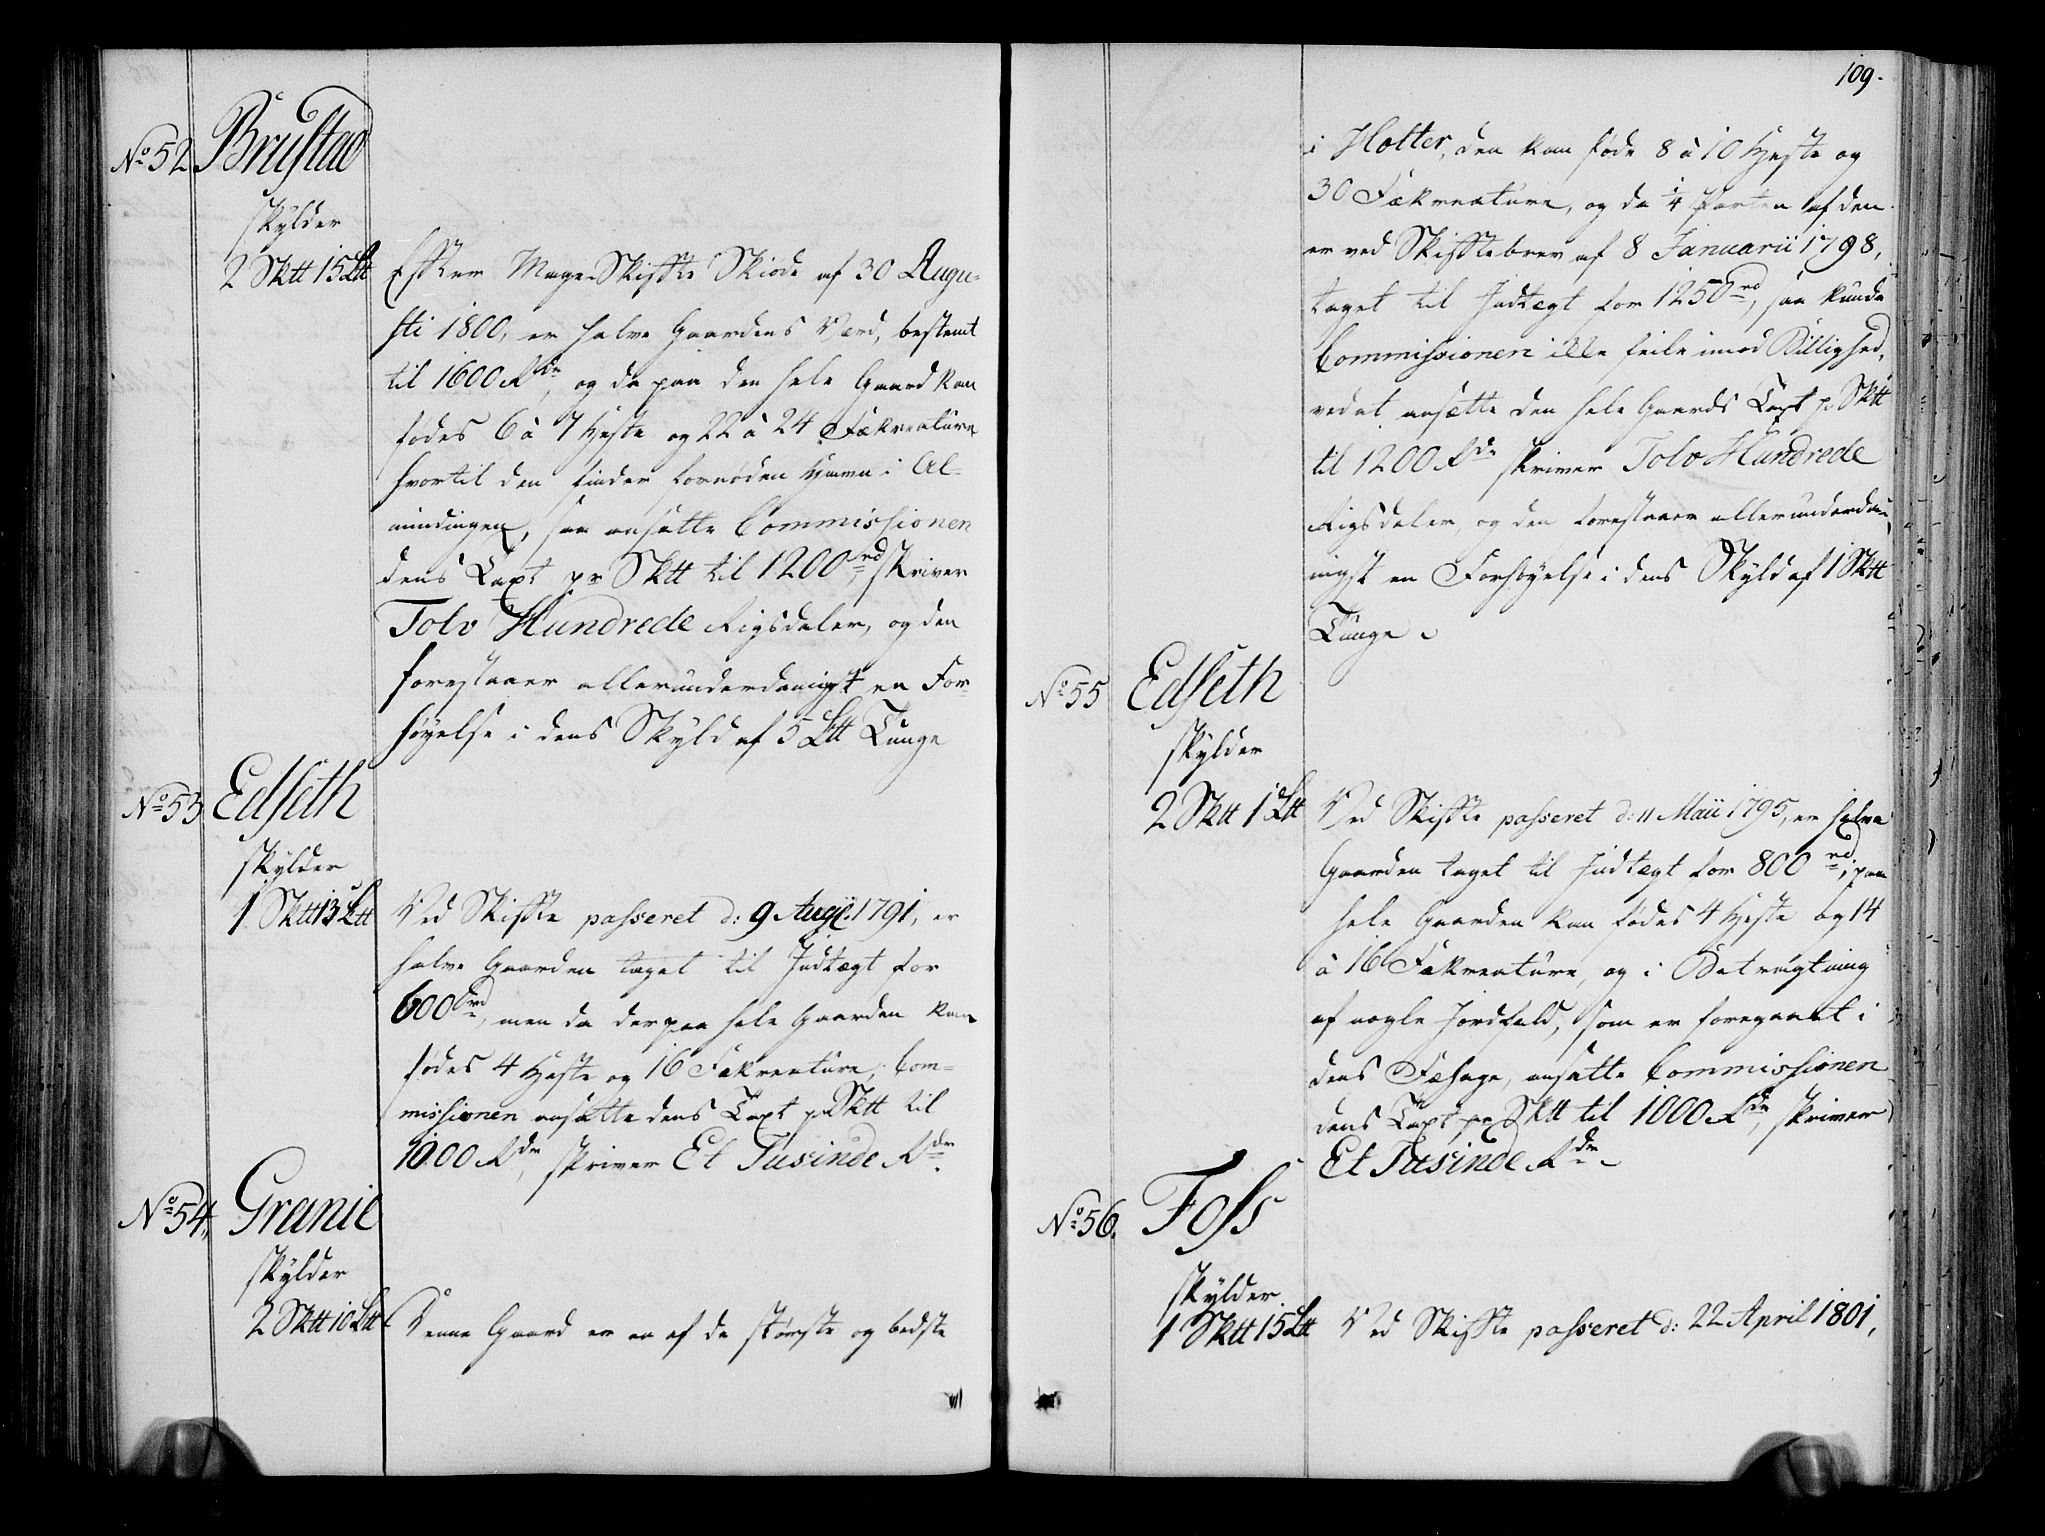 No 52 Brustad
skylder
2 Sktt 15 Ltt
Efter MageSkiftte Skiøde af 30 Augu-
sti 1800, er halve Gaardens Værd, bestemt
til 1600 Rdr, og da paa den hele Gaard kan
fødes 6 à 7 Heste og 22 à 24 Fækreature
hvortil den finder fornøden Havn i Al-
mindingen, saa ansatte Commissionen
dens Taxt pr Sktt til 1200 rd, skriver
Tolv Hundrede Rigsdaler, og den
forestaaer allerunderdanigst en For-
høyelse i dens Skyld af 5 Ltt Tunge
No 53 Edseth
skylder
1 Sktt 13 Ltt
Ved Skiftte passeret d: 9 Aug: 1791, er
halve Gaarden taget til Indtægt for
600 rd, men da derpaa hele Gaarden kan
fødes 4 Heste og 16 Fækreature, Com-
missionen ansatte dens Taxt pr Sktt til
1000 Rdr, skriver Et Tusinde Rdr.
No 54. Granie
skylder
2 Sktt 10 Ltt
Denne Gaard er en af de største og bedste
109.
i Holter, den kan føde 8 à 10 Heste og
30 Fækreature, og da 1/4 Parten af den
er ved Skifttebrev af 8 Januarii 1798,
taget til Indtægt for 1250 rd, saa kunde
Commissionen ikke feile imod Billighed,
ved at ansætte den hele Gaards Taxt pr Sktt
til 1200 Rdr skriver Tolv Hundrede
Rigsdaler, og den forestaaer allerunderda-
nigst en Forhøyelse i dens Skyld af 1 Sktt
Tunge
No 55 Edseth
skylder
2 Sktt 1 Ltt
Ved Skiftte passeret d: 11 Maii 1795, er halve
Gaarden taget til Indtægt for 800 rd, paa
hele Gaarden kan fødes 4 Heste og 14
à 16 Fækreature, og i Betragtning
af nogle Jordfald, som er foregaaet i
dens Fæhage, ansatte Commissionen
dens Taxt pr Sktt til 1000 Rdr, skriver
Et Tusinde Rdr
No 56. Foss
skylder
1 Sktt 15 Ltt
Ved Skiftte passeret d: 22 April 1801,